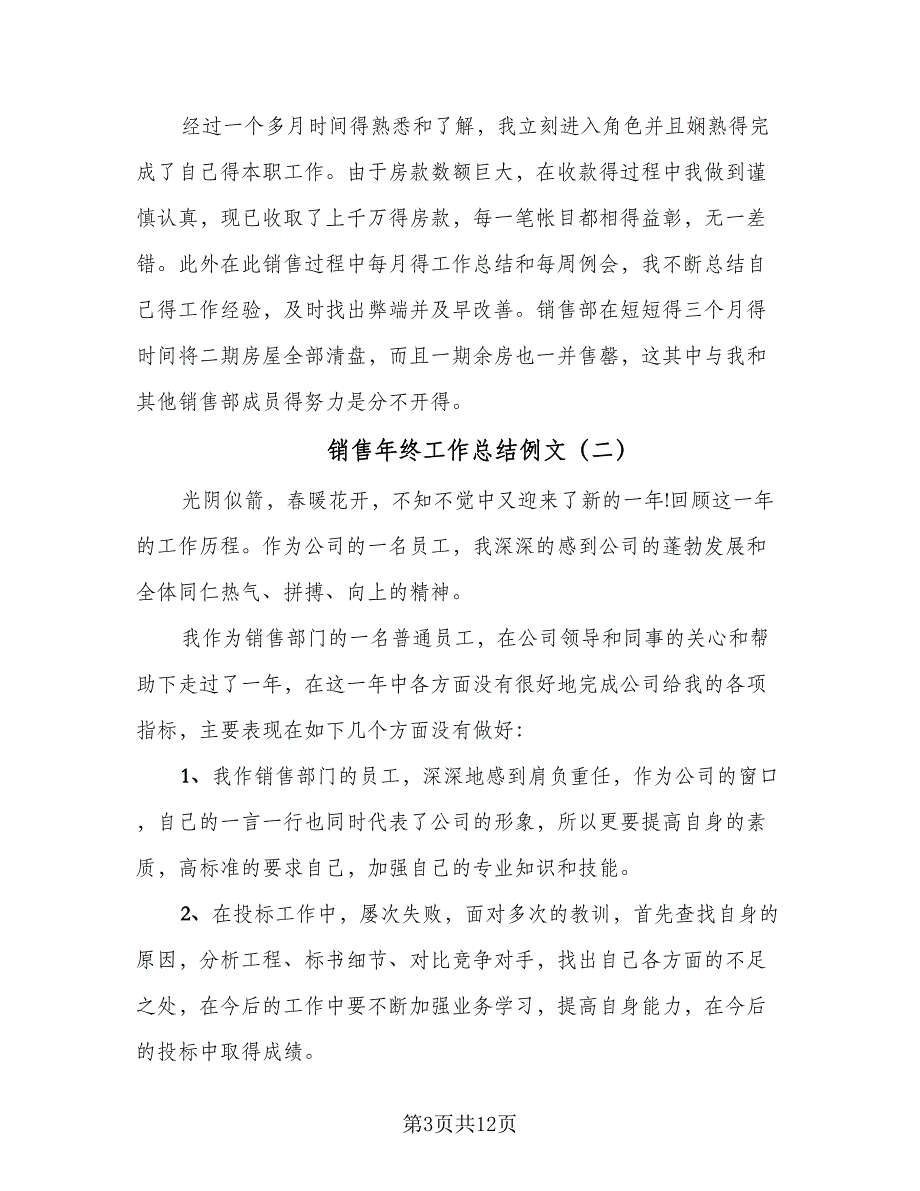 经过一个多月时间得熟悉和了解，我立刻进入角色并且娴熟得完
成了自己得本职工作。由于房款数额巨大，在收款得过程中我做到谨
慎认真，现已收取了上千万得房款，每一笔帐目都相得益彰，无一差
错。此外在此销售过程中每月得工作总结和每周例会，我不断总结自
己得工作经验，及时找出弊端并及早改善。销售部在短短得三个月得
时间将二期房屋全部清盘，而且一期余房也一并售罄，这其中与我和
其他销售部成员得努力是分不开得。
销售年终工作总结例文（二）
光阴似箭，春暖花开，不知不觉中又迎来了新的一年!回顾这一年
的工作历程。作为公司的一名员工，我深深的感到公司的蓬勃发展和
全体同仁热气、拼搏、向上的精神。
我作为销售部门的一名普通员工，在公司领导和同事的关心和帮
助下走过了一年，在这一年中各方面没有很好地完成公司给我的各项
指标，主要表现在如下几个方面没有做好：
1、我作销售部门的员工，深深地感到肩负重任，作为公司的窗口
，自己的一言一行也同时代表了公司的形象，所以更要提高自身的素
质，高标准的要求自己，加强自己的专业知识和技能。
2、在投标工作中，屡次失败，面对多次的教训，首先查找自身的
原因，分析工程、标书细节、对比竞争对手，找出自己各方面的不足
之处，在今后的工作中要不断加强业务学习，提高自身能力，在今后
的投标中取得成绩。
第3页共12页